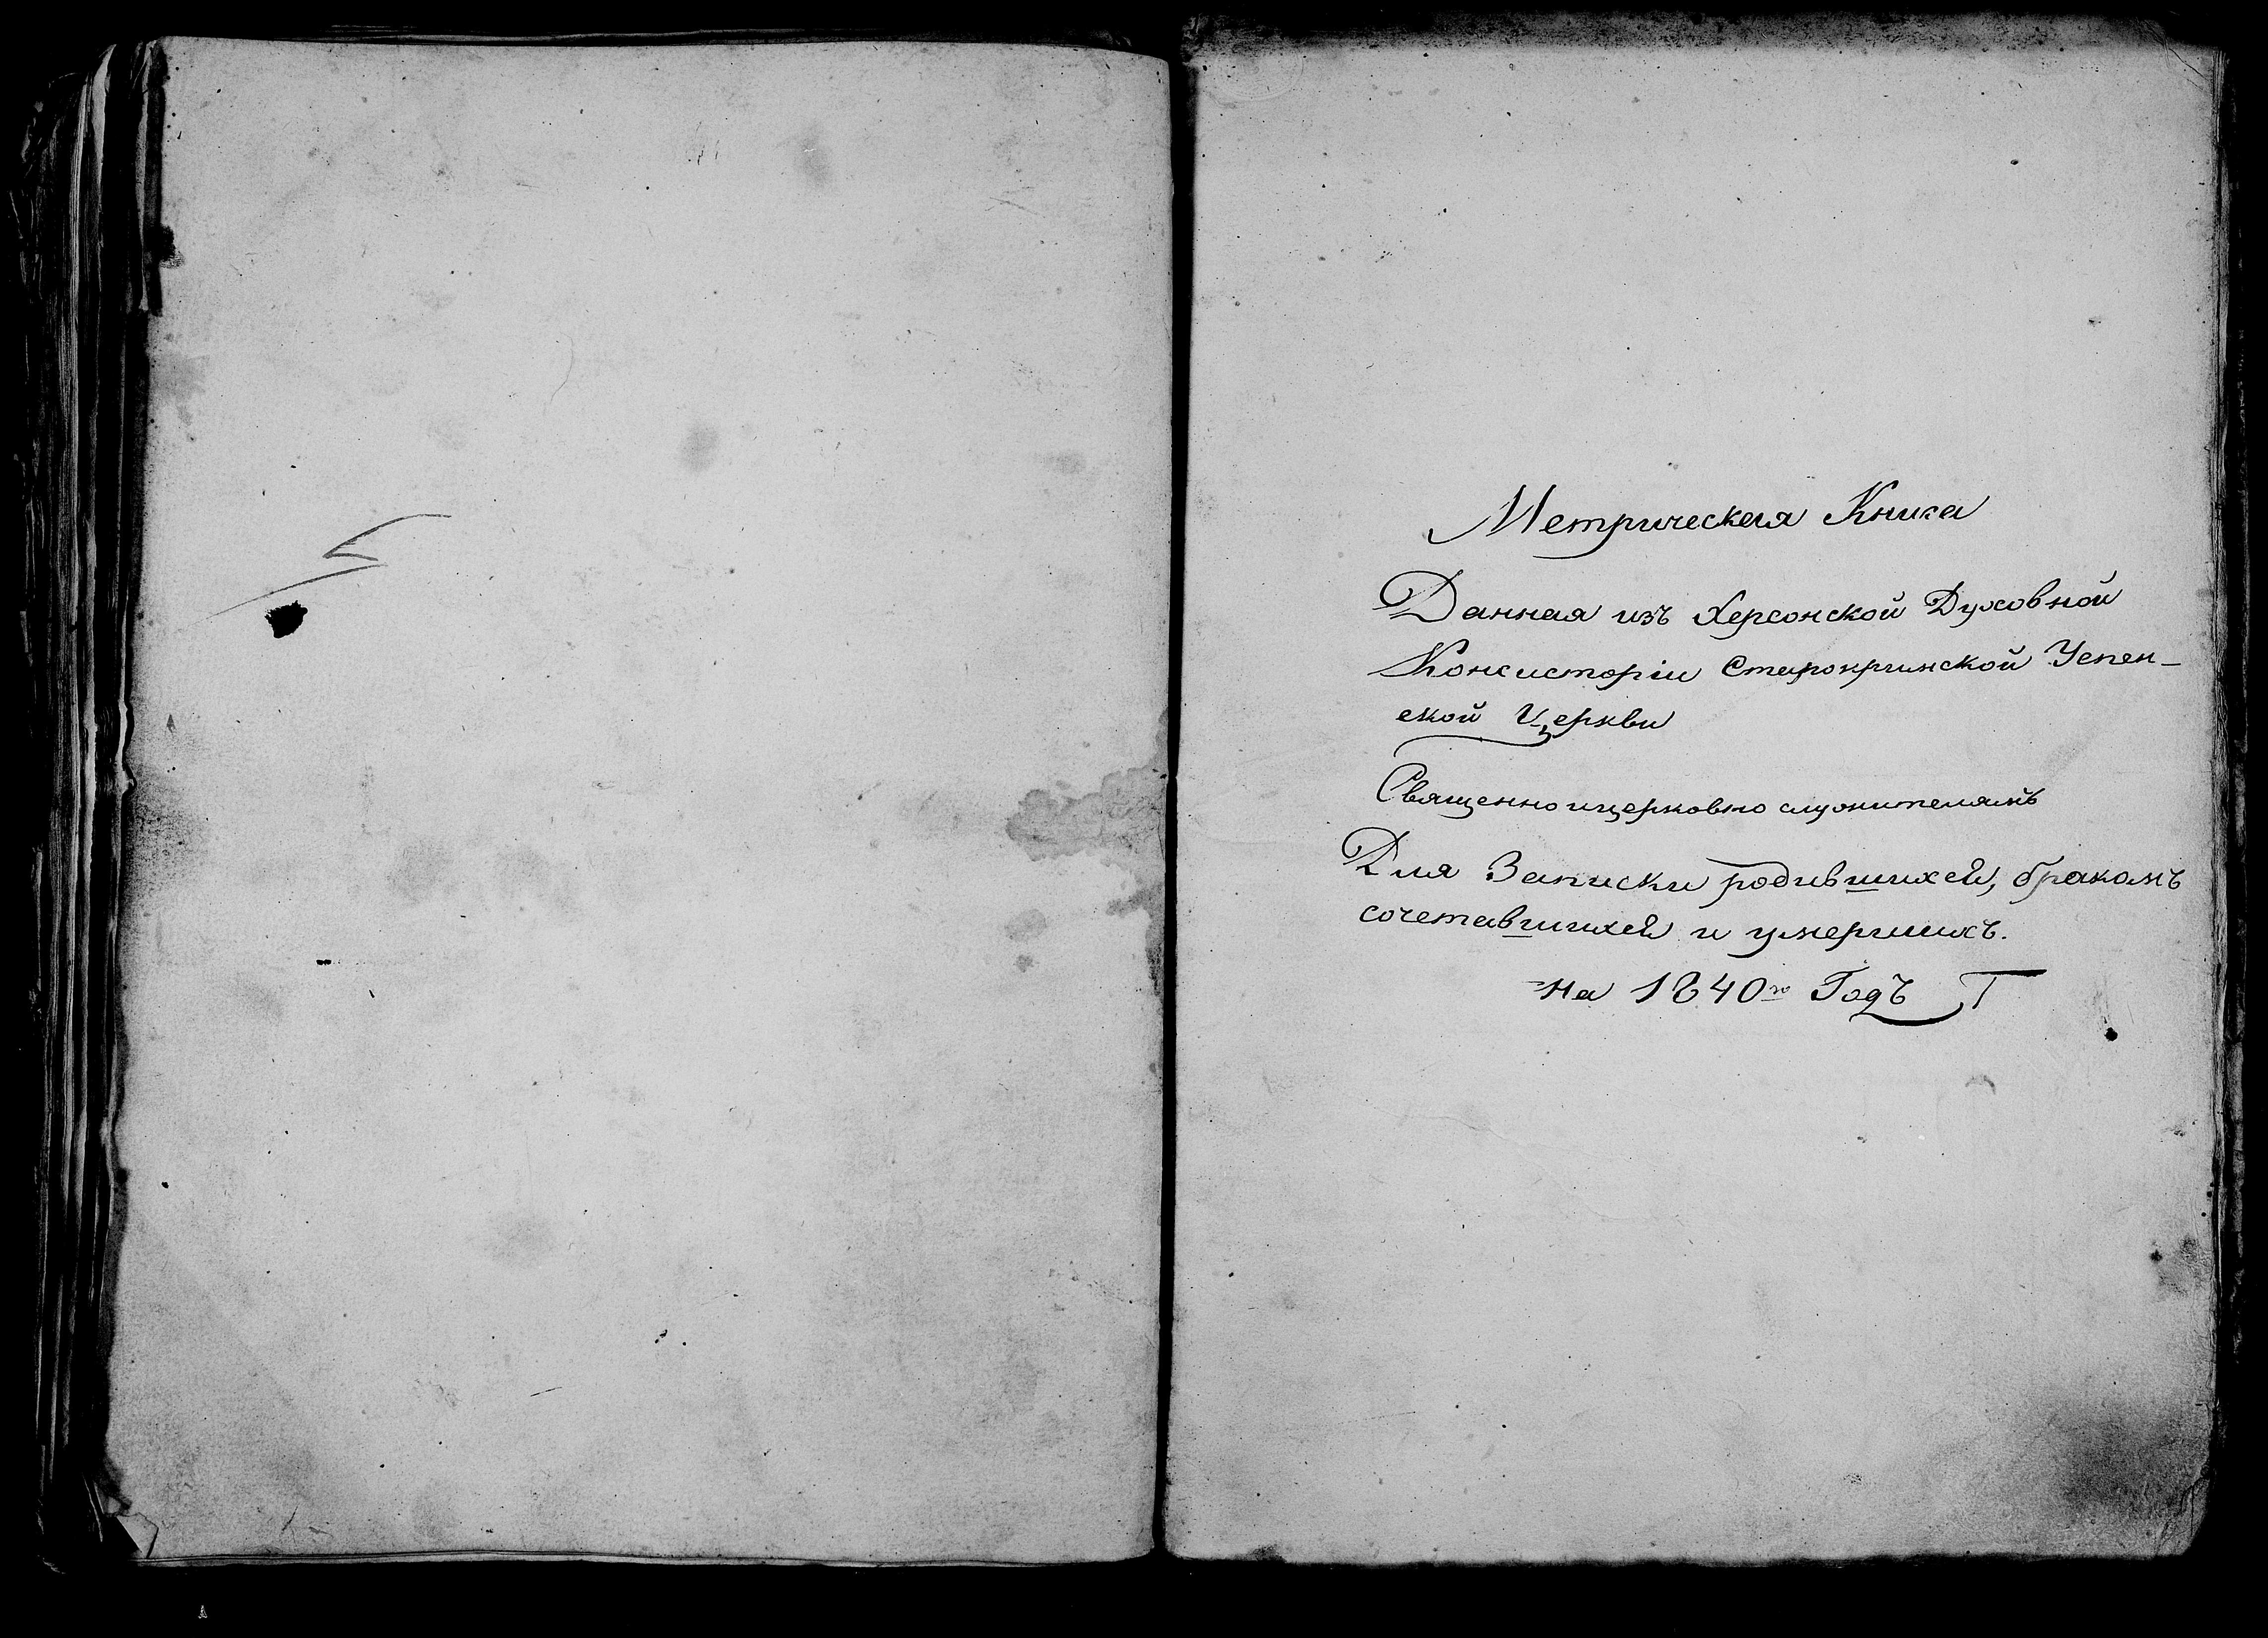 Метрическая Книга
Данная изъ Херсонской Духовной
Консисторіи Старокримской Успен-
ской Церкви
Священно и церковно служителямъ
Для Записки родившихся, бракомъ
сочетавшихся и умершихъ.
на 1840й Годъ